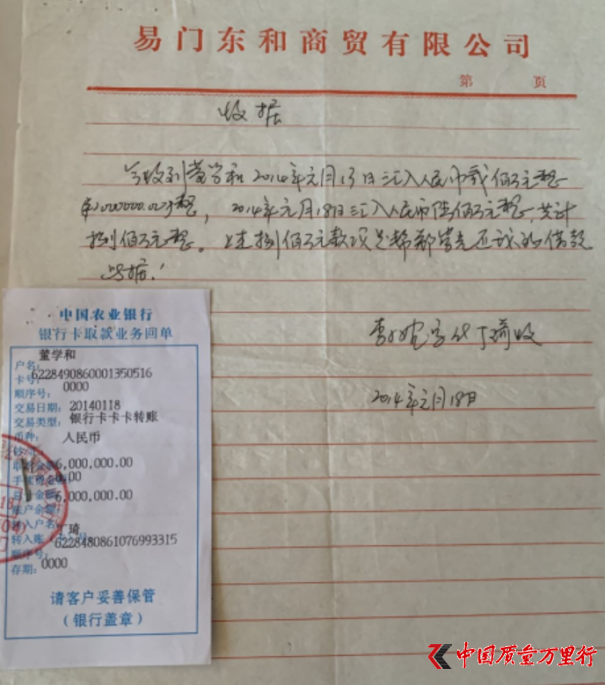 易门东和商贸有限公司
第 页
收据
今收到董学和2014年元月13日汇入人民币贰佰万元整
¥2000000.00元整，2014年元月18日汇入人民币陆佰万元整，共计
捌佰万元整。上述捌佰万元款项是帮邹先还我的借款
此据！
代丁琦收
2014年元月18日
中国农业银行
银行卡取款业务回单
户名：董学和
卡号：6228490860001350516
顺序号：0000
交易日期：20140118
交易类型：银行卡卡卡转账
币种：人民币
6,000,000.00
0.00
6,000,000.00
转入户名：丁琦
转入账 6228480861076993315
顺序号：0000
存期：
请客户妥善保管
（银行盖章）
中国质量万里行